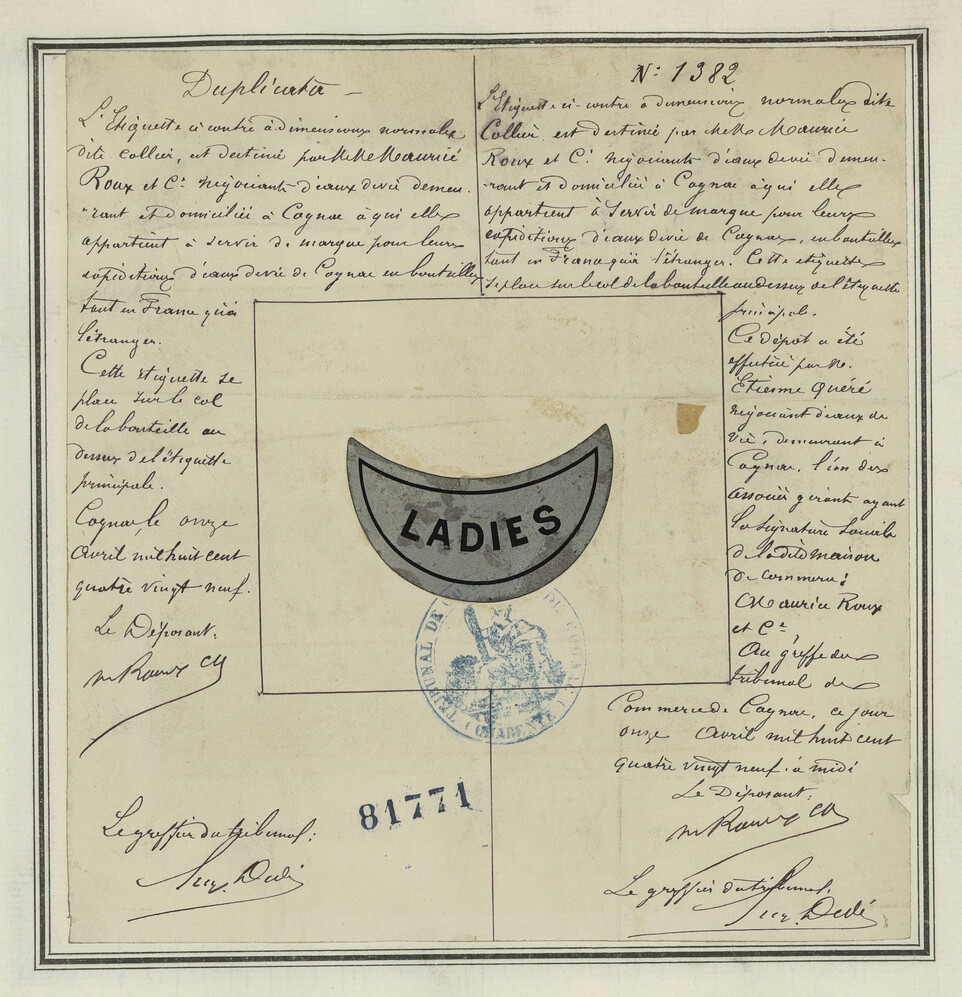 Duplicata
L'Etiquette ci contre à dimensions normales
dite collier, est destiné par MMrs Maurice
Roux et Cie négociants d'eaux de vie demeu-
-rant et domiciliés à Cognac à qui elle
appartient à servir de marque pour leurs
expéditions d'eaux de vie de Cognac en bouteilles
tant en France qu'à
l'étranger.
Cette étiquette se
place sur le col
de la bouteille au
dessus de l'étiquette
principale.
Cognac, le onze
avril mil huit cent
quatre vingt neuf.
Le Déposant:
M Roux & Cie
Le greffier du tribunal:
Dedé
N° 1382
L'Etiquette ci-contre à dimensions normales dite
Collier est destiné par MMrs Maurice
Roux et Cie négociants d'eaux de vie demeu-
-rant et domiciliés à Cognac à qui elle
appartient à servir de marque pour leurs
expéditions d'eaux de vie de Cognac, en bouteilles
tant en France qu'à l'étranger. Cette étiquette
se place sur le col de la bouteille au dessus de l'étiquette
principale.
Ce dépôt a été
effectué par M.
Etienne Quéré
négociant d'eaux de
vie, demeurant à
Cognac, l'un des
associés gérant ayant
la signature sociale
de la dite maison
de commerce:
Maurice Roux
et Cie
Au greffe du
tribunal de
Commerce de Cognac, ce jour
onze Avril mil huit cent
quatre vingt neuf à midi
Le Déposant:
M Roux & Cie
Le greffier du tribunal:
Dedé
LADIES
TRIBUNAL DE CO DE COGNAC
(CHARENTE)
81771